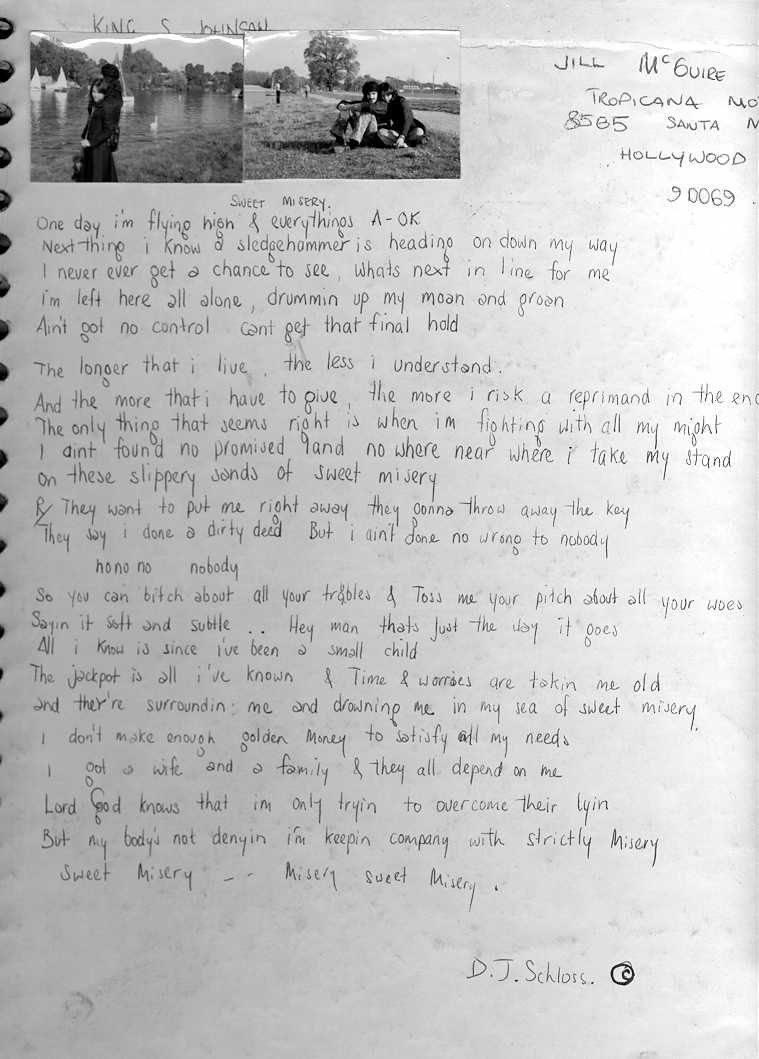 KING S JOHNSON
JILL McGUIRE
TROPICANA MO
8585 SANTA M
HOLLYWOOD
90069.
SWEET MISERY.
One day i'm flying high & everythings A-OK
Next thing i know a sledgehammer is heading on down my way
I never ever get a chance to see, whats next in line for me
i'm left here all alone, drummin up my moan and groan
Ain't got no control cant get that final hold
The longer that i live, the less i understand.
And the more that i have to give, the more i risk a reprimand in the end
The only thing that seems right is when im fighting with all my might
I aint found no promised land no where near where i take my stand
on these slippery sands of sweet misery
They want to put me right away they gonna throw away the key
They say i done a dirty deed But i ain't done no wrong to nobody
no no no nobody
So you can bitch about all your trobles & Toss me your pitch about all your woes
Sayin it soft and subtle .. Hey man thats just the way it goes
All i know is since i've been a small child
The jackpot is all i've known & Time & worries are takin me old
and they're surroundin: me and drowning me in my sea of sweet misery.
I don't make enough golden money to satisfy all my needs
I got a wife and a family & they all depend on me
Lord God knows that im only tryin to overcome their lyin
But my body's not denyin i'm keepin company with strictly Misery
Sweet Misery -- Misery sweet Misery.
D.J. Schloss. ©